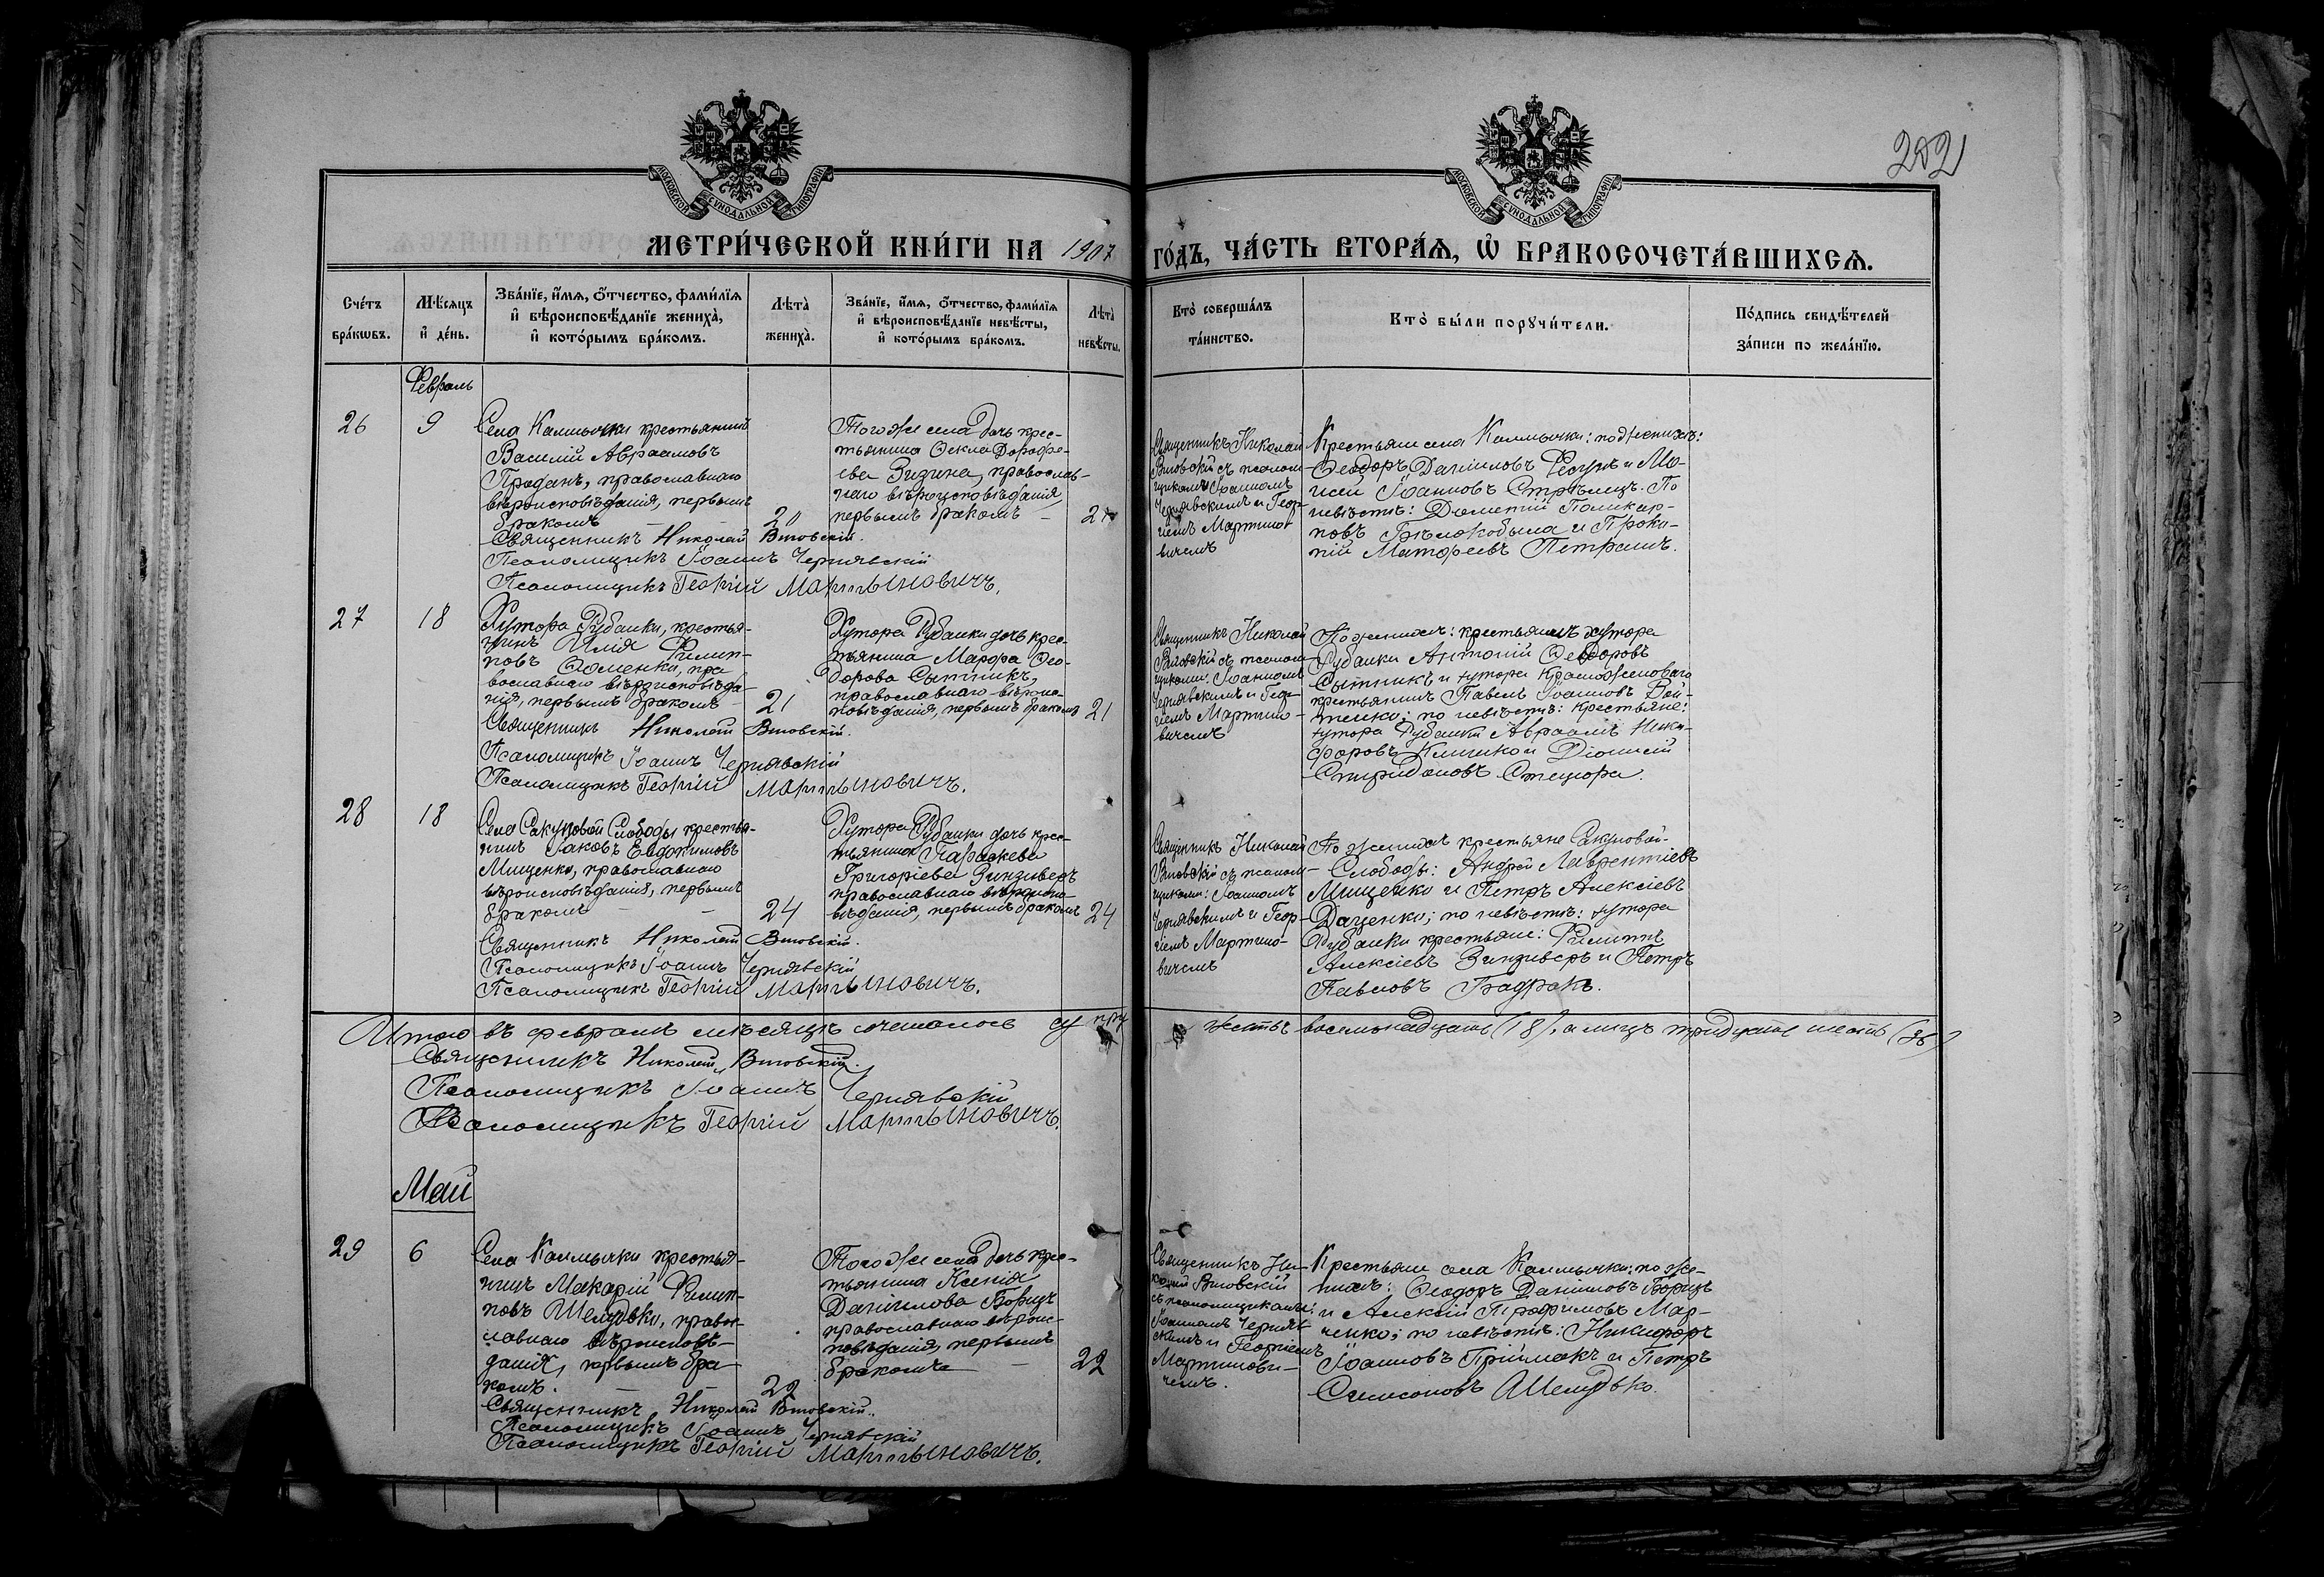 202
МОСКОВСКОЙ СУНОДАЛЬНОЙ ТИПОГРАФІИ
МОСКОВСКОЙ СУНОДАЛЬНОЙ ТИПОГРАФІИ
МЕТРИ́ЧЕСКОЙ КНИ́ГИ НА 1907 ГО́ДЪ, ЧА́СТЬ ВТОРА́Ѧ, Ѡ҆ БРАКОСОЧЕТА́ВШИХСѦ.
Сче́тъ
бра́кѡвъ.
Мѣ́сяцъ
и҆ де́нь.
Зва́нїе, и҆́мѧ, о҆́тчество, фами́лїѧ
и҆ вѣроисповѣ́данїе жениха̀,
и҆ кото́рымъ бра́комъ.
Лѣ́та̀
жениха̀.
Зва́нїе, и҆́мѧ, о҆́тчество, фами́лїѧ
и҆ вѣроисповѣ́данїе невѣ́сты,
и҆ кото́рымъ бра́комъ.
Лѣ́та̀
невѣ́сты.
Кто̀ соверша́лъ
та́инство.
Кто̀ бы́ли порꙋчи́тели.
По́дпись свидѣ́телей
за́писи по жела́нїю.
Февраль
26
9
Села Калмычки крестьянинъ
Василій Авраамовъ
Продань, православнаго
вѣроисповѣданія, первымъ
бракомъ
20
Того же села дочь крес-
тьянина Ѳекла Дорофе-
ева Зизина, православ-
наго вѣроисповѣданія,
первымъ бракомъ
Священникъ Николай
съ псалом-
щикомъ Іоанномъ
Чернявскимъ и Геор-
гіемъ Мартино-
вичемъ
Крестьяне села Калмычки: по женихѣ:
Ѳеодоръ Даніиловъ Фесунъ и Мо-
исей Іоанновъ Стрѣлецъ. По
невѣстѣ: Дометій Поликар-
повъ Бѣлокобыла и Проко-
пій Матѳеевъ Петрашъ.
Священникъ Николай
Псаломщикъ Іоаннъ Чернявскій
Псаломщикъ Георгій Мартыновичъ.
27
18
Хутора Рубанки, крестья-
нинъ Илія Филип-
повъ Ѳоменко, пра
вославнаго вѣроисповѣда-
нія, первымъ бракомъ
21
Хутора Рубанки дочь крес-
тьянина Марфа Ѳео-
дорова Сытникъ,
православнаго вѣроис-
повѣданія, первымъ бракомъ
21
Священникъ Николай
съ псалом-
щиками: Іоанномъ
Чернявскимъ и Геор-
гіемъ Мартино-
вичемъ
По женихѣ: крестьянинъ хутора
Рубанки Антоній Ѳеодоровъ
Сытникъ и хутора
крестьянинъ Павелъ Іоанновъ Вой-
тенко; по невѣстѣ: крестьяне:
хутора Рубанки Авраамъ Ники-
форовъ Клименко и Діонисій
Спиридоновъ Стецюра.
Священникъ Николай
Псаломщикъ Іоаннъ Чернявскій
Псаломщикъ Георгій Мартыновичъ.
28
18
Села Сакуновой Слободы крестья-
нинъ Іаковъ Евдокимовъ
Мищенко, православнаго
вѣроисповѣданія, первымъ
бракомъ
24
Хутора Рубанки дочь крес-
тьянина Параскева
Григоріева Зинзиверъ
православнаго вѣроиспо-
вѣданія, первымъ бракомъ
24
Священникъ Николай
съ псалом-
щиками: Іоанномъ
Чернявскимъ и Геор-
гіемъ Мартино-
вичемъ
По женихѣ крестьяне Сакуновой
Слободы: Андрей Лаврентіевъ
Мищенко и Петръ Алексіевъ
Даценко; по невѣстѣ: хутора
Рубанки крестьяне: Филиппъ
Алексіевъ Зинзиверъ и Петръ
Павловъ Бадракъ.
Священникъ Николай
Псаломщикъ Іоаннъ Чернявскій
Псаломщикъ Георгій Мартыновичъ.
Итого въ февралѣ мѣсяцѣ сочеталось супружествъ восемьнадцать (18), а лицъ тридцать шесть (36)
Священникъ Николай
Псаломщикъ Іоаннъ Чернявскій
Псаломщикъ Георгій Мартыновичъ.
Май
29
6
Села Калмычки крестья-
нинъ Макарій Филип-
повъ Шелудько, право-
славнаго вѣроисповѣ-
данія, первымъ бра-
комъ.
22
Того же села дочь крес-
тьянина Ксенія
Даніилова Борецъ
православнаго вѣроис-
повѣданія, первымъ
бракомъ
22
Священникъ Ни-
колай
съ псаломщиками:
Іоанномъ Черняв-
скимъ и Георгіемъ
Мартинови-
чемъ.
Крестьяне села Калмычки: по же-
нихѣ: Ѳеодоръ Даніиловъ Борецъ
и Алексій Трофимовъ Мар-
ченко; по невѣстѣ: Никифоръ
Іоанновъ Пріймакъ и Петръ
Симеоновъ Шелудько.
Священникъ Николай
Псаломщикъ Іоаннъ Чернявскій
Псаломщикъ Георгій Мартыновичъ.